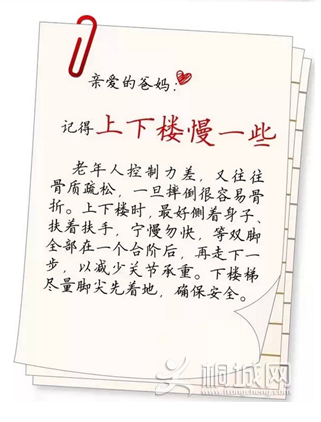 亲爱的爸妈：
记得上下楼慢一些
老年人控制力差，又往往
骨质疏松，一旦摔倒很容易骨
折。上下楼时，最好侧着身子、
扶着扶手，宁慢勿快，等双脚
全部在一个台阶后，再走下一
步，以减少关节承重。下楼梯
尽量脚尖先着地，确保安全。
桐城网
itongcheng.com